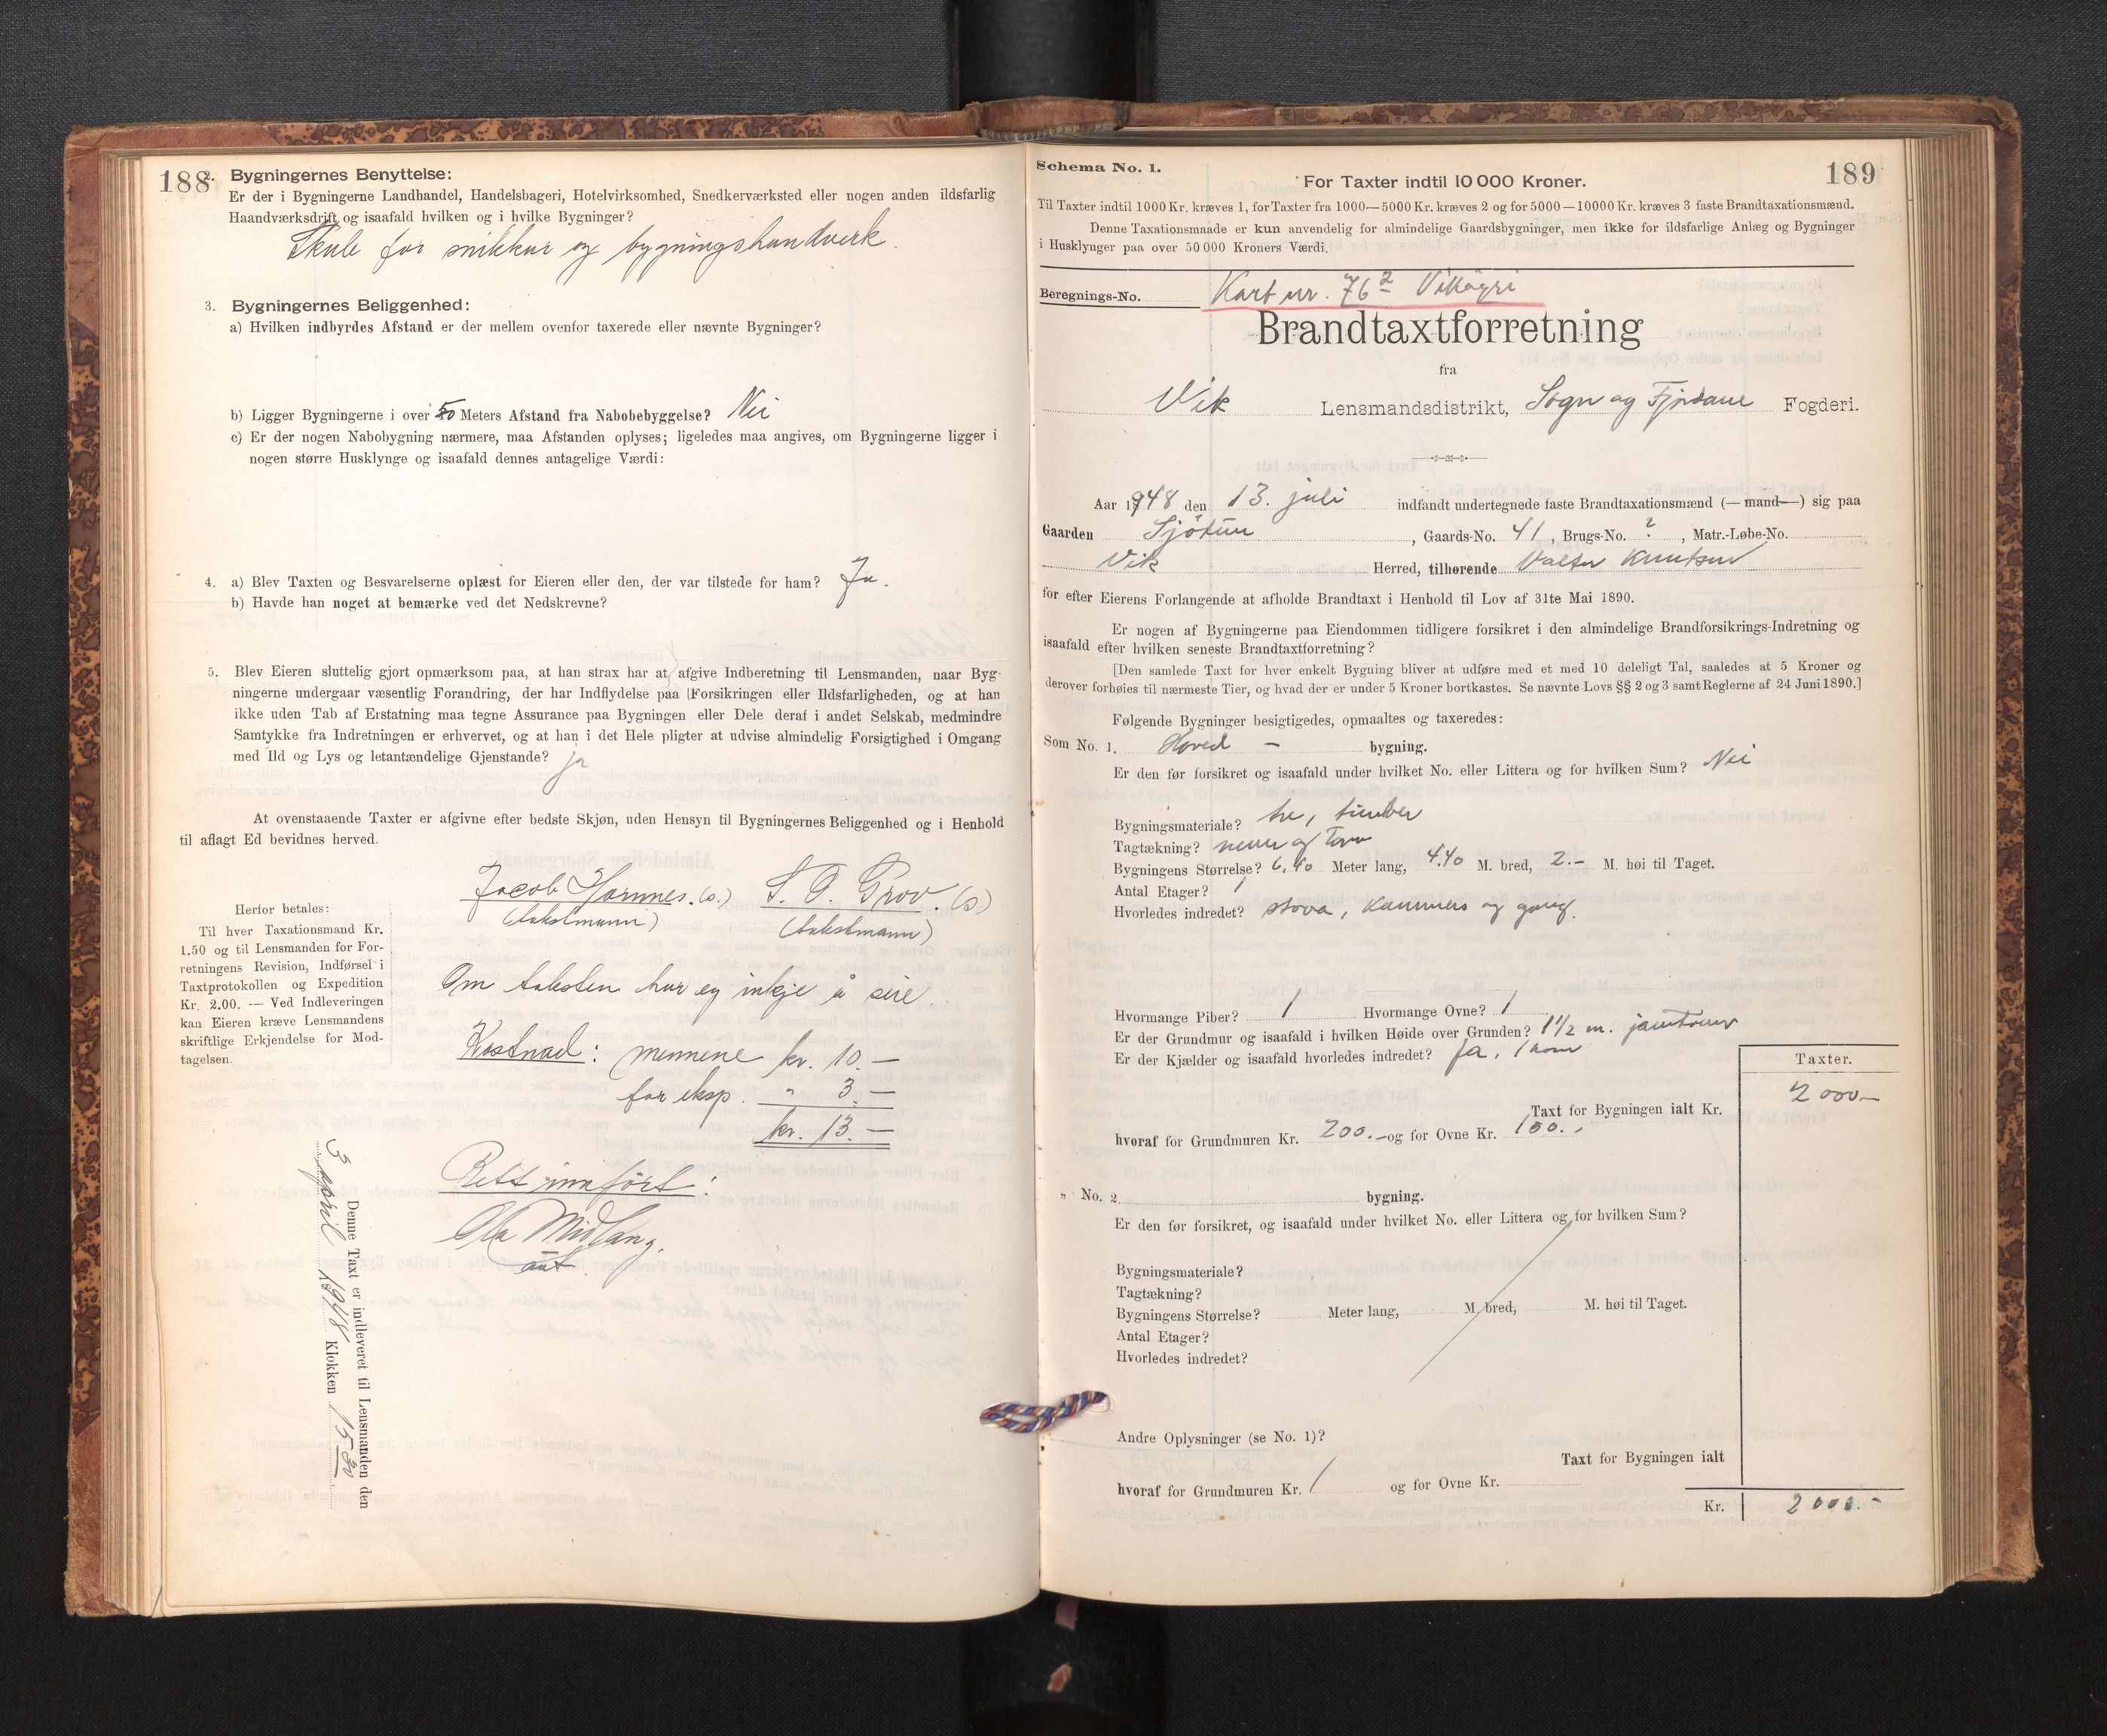 188
2. Bygningernes Benyttelse:
Er der i Bygningerne Landhandel, Handelsbageri, Hotelvirksomhed, Snedkerværksted eller nogen anden ildsfarlig
Haandværksdrift og isaafald hvilken og i hvilke Bygninger?
Skule for snikkar og bygningshandverk.
3. Bygningernes Beliggenhed:
a) Hvilken indbyrdes Afstand er der mellem ovenfor taxerede eller nævnte Bygninger?
b) Ligger Bygningerne i over 50 Meters Afstand fra Nabobebyggelse? Nei
c) Er der nogen Nabobygning nærmere, maa Afstanden oplyses; ligeledes maa angives, om Bygningerne ligger i
nogen større Husklynge og isaafald dennes antagelige Værdi:
4. a) Blev Taxten og Besvarelserne oplæst for Eieren eller den, der var tilstede for ham? Ja.
b) Havde han noget at bemærke ved det Nedskrevne?
5. Blev Eieren sluttelig gjort opmærksom paa, at han strax har at afgive Indberetning til Lensmanden, naar Byg-
ningerne undergaar væsentlig Forandring, der har Indflydelse paa Forsikringen eller Ildsfarligheden, og at han
ikke uden Tab af Erstatning maa tegne Assurance paa Bygningen eller Dele deraf i andet Selskab, medmindre
Samtykke fra Indretningen er erhvervet, og at han i det Hele pligter at udvise almindelig Forsigtighed i Omgang
med Ild og Lys og letantændelige Gjenstande? ja
At ovenstaaende Taxter er afgivne efter bedste Skjøn, uden Hensyn til Bygningernes Beliggenhed og i Henhold
til aflagt Ed bevidnes herved.
Jacob Hamnes. (s.) S. O. Grov. (s)
(takstmann) (takstmann)
Herfor betales:
Til hver Taxationsmand Kr.
1.50 og til Lensmanden for For-
retningens Revision, Indførsel i
Taxtprotokollen og Expedition
Kr. 2.00. — Ved Indleveringen
kan Eieren kræve Lensmandens
skriftlige Erkjendelse for Mod-
tagelsen.
Om taksten har eg inkje å seie.
Kostnad: mennene kr. 10.—
for eksp. " 3.—
kr. 13.—
Rett innført:
Ola Midlang.
Denne Taxt er indleveret til Lensmanden den
3 april 1948 Klokken 15-30
Schema No. 1.
For Taxter indtil 10 000 Kroner.
189
Til Taxter indtil 1000 Kr. kræves 1, for Taxter fra 1000—5000 Kr. kræves 2 og for 5000—10000 Kr. kræves 3 faste Brandtaxationsmænd.
Denne Taxationsmaade er kun anvendelig for almindelige Gaardsbygninger, men ikke for ildsfarlige Anlæg og Bygninger
i Husklynger paa over 50 000 Kroners Værdi.
Beregnings-No. Kart nr. 76 2 Vikøyri
Brandtaxtforretning
fra
Vik Lensmandsdistrikt, Sogn og Fjordane Fogderi.
Aar 1948 den 13. juli indfandt undertegnede faste Brandtaxationsmænd (—mand—) sig paa
Gaarden Sjøtun, Gaards-No. 41, Brugs-No. ?, Matr.-Løbe-No.
Vik Herred, tilhørende Valter Knutsen
for efter Eierens Forlangende at afholde Brandtaxt i Henhold til Lov af 31te Mai 1890.
Er nogen af Bygningerne paa Eiendommen tidligere forsikret i den almindelige Brandforsikrings-Indretning og
isaafald efter hvilken seneste Brandtaxtforretning?
[Den samlede Taxt for hver enkelt Bygning bliver at udføre med et med 10 deleligt Tal, saaledes at 5 Kroner og
derover forhøies til nærmeste Tier, og hvad der er under 5 Kroner bortkastes. Se nævnte Lovs §§ 2 og 3 samt Reglerne af 24 Juni 1890.]
Følgende Bygninger besigtigedes, opmaaltes og taxeredes:
Som No. 1. Hoved — bygning.
Er den før forsikret og isaafald under hvilket No. eller Littera og for hvilken Sum? Nei
Bygningsmateriale? tre, timber
Tagtækning? never og torv
Bygningens Størrelse? 6,40 Meter lang, 4.40 M. bred, 2.- M. høi til Taget.
Antal Etager? 1
Hvorledes indredet? stova, kammers og gang.
Hvormange Piber? 1 Hvormange Ovne? 1
Er der Grundmur og isaafald i hvilken Høide over Grunden? 1 1/2 m.
Er der Kjælder og isaafald hvorledes indredet? Ja, 1 rom
Taxter.
Taxt for Bygningen ialt Kr. 2 000—
hvoraf for Grundmuren Kr. 200.- og for Ovne Kr. 100.-
" No. 2. bygning.
Er den før forsikret, og isaafald under hvilket No. eller Littera og for hvilken Sum?
Bygningsmateriale?
Tagtækning?
Bygningens Størrelse? Meter lang, M. bred, M. høi til Taget.
Antal Etager?
Hvorledes indredet?
Andre Oplysninger (se No. 1)?
Taxt for Bygningen ialt
hvoraf for Grundmuren Kr. og for Ovne Kr.
Kr. 2000.-